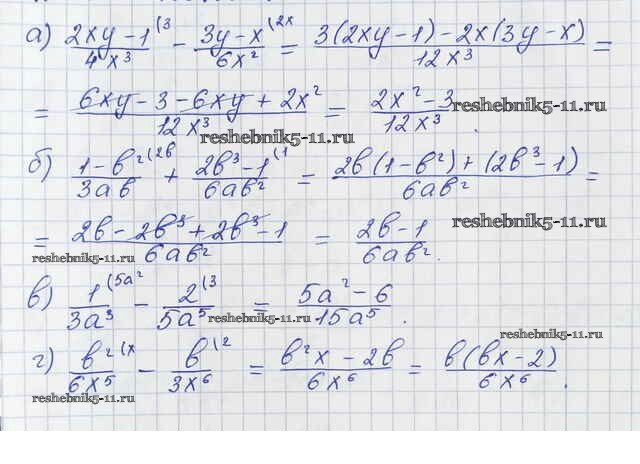 а) (2xy − 1)/(4x³) ⁽³ − (3y − x)/(6x²) ⁽²ˣ = (3(2xy − 1) − 2x(3y − x))/(12x³) =
= (6xy − 3 − 6xy + 2x²)/(12x³) = (2x² − 3)/(12x³). reshebnik5-11.ru
reshebnik5-11.ru
б) (1 − b²)/(3ab) ⁽²ᵇ + (2b³ − 1)/(6ab²) ⁽¹ = (2b(1 − b²) + (2b³ − 1))/(6ab²) =
= (2b − 2b³ + 2b³ − 1)/(6ab²) = (2b − 1)/(6ab²). reshebnik5-11.ru
reshebnik5-11.ru
в) 1/(3a³) ⁽⁵ᵃ² − 2/(5a⁵) ⁽³ = (5a² − 6)/(15a⁵).
reshebnik5-11.ru
reshebnik5-11.ru
г) b²/(6x⁵) ⁽ˣ − b/(3x⁶) ⁽² = (b²x − 2b)/(6x⁶) = (b(bx − 2))/(6x⁶).
reshebnik5-11.ru